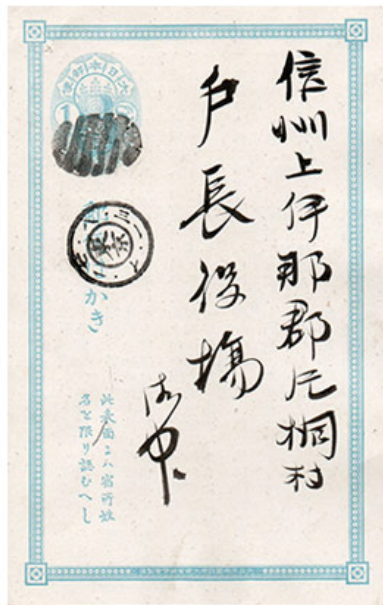 信州上伊那郡片桐村
戸長役場
御中
大日本郵便
1
郵便はかき
此表面ニハ宿所姓
名を限り認むへし
東京